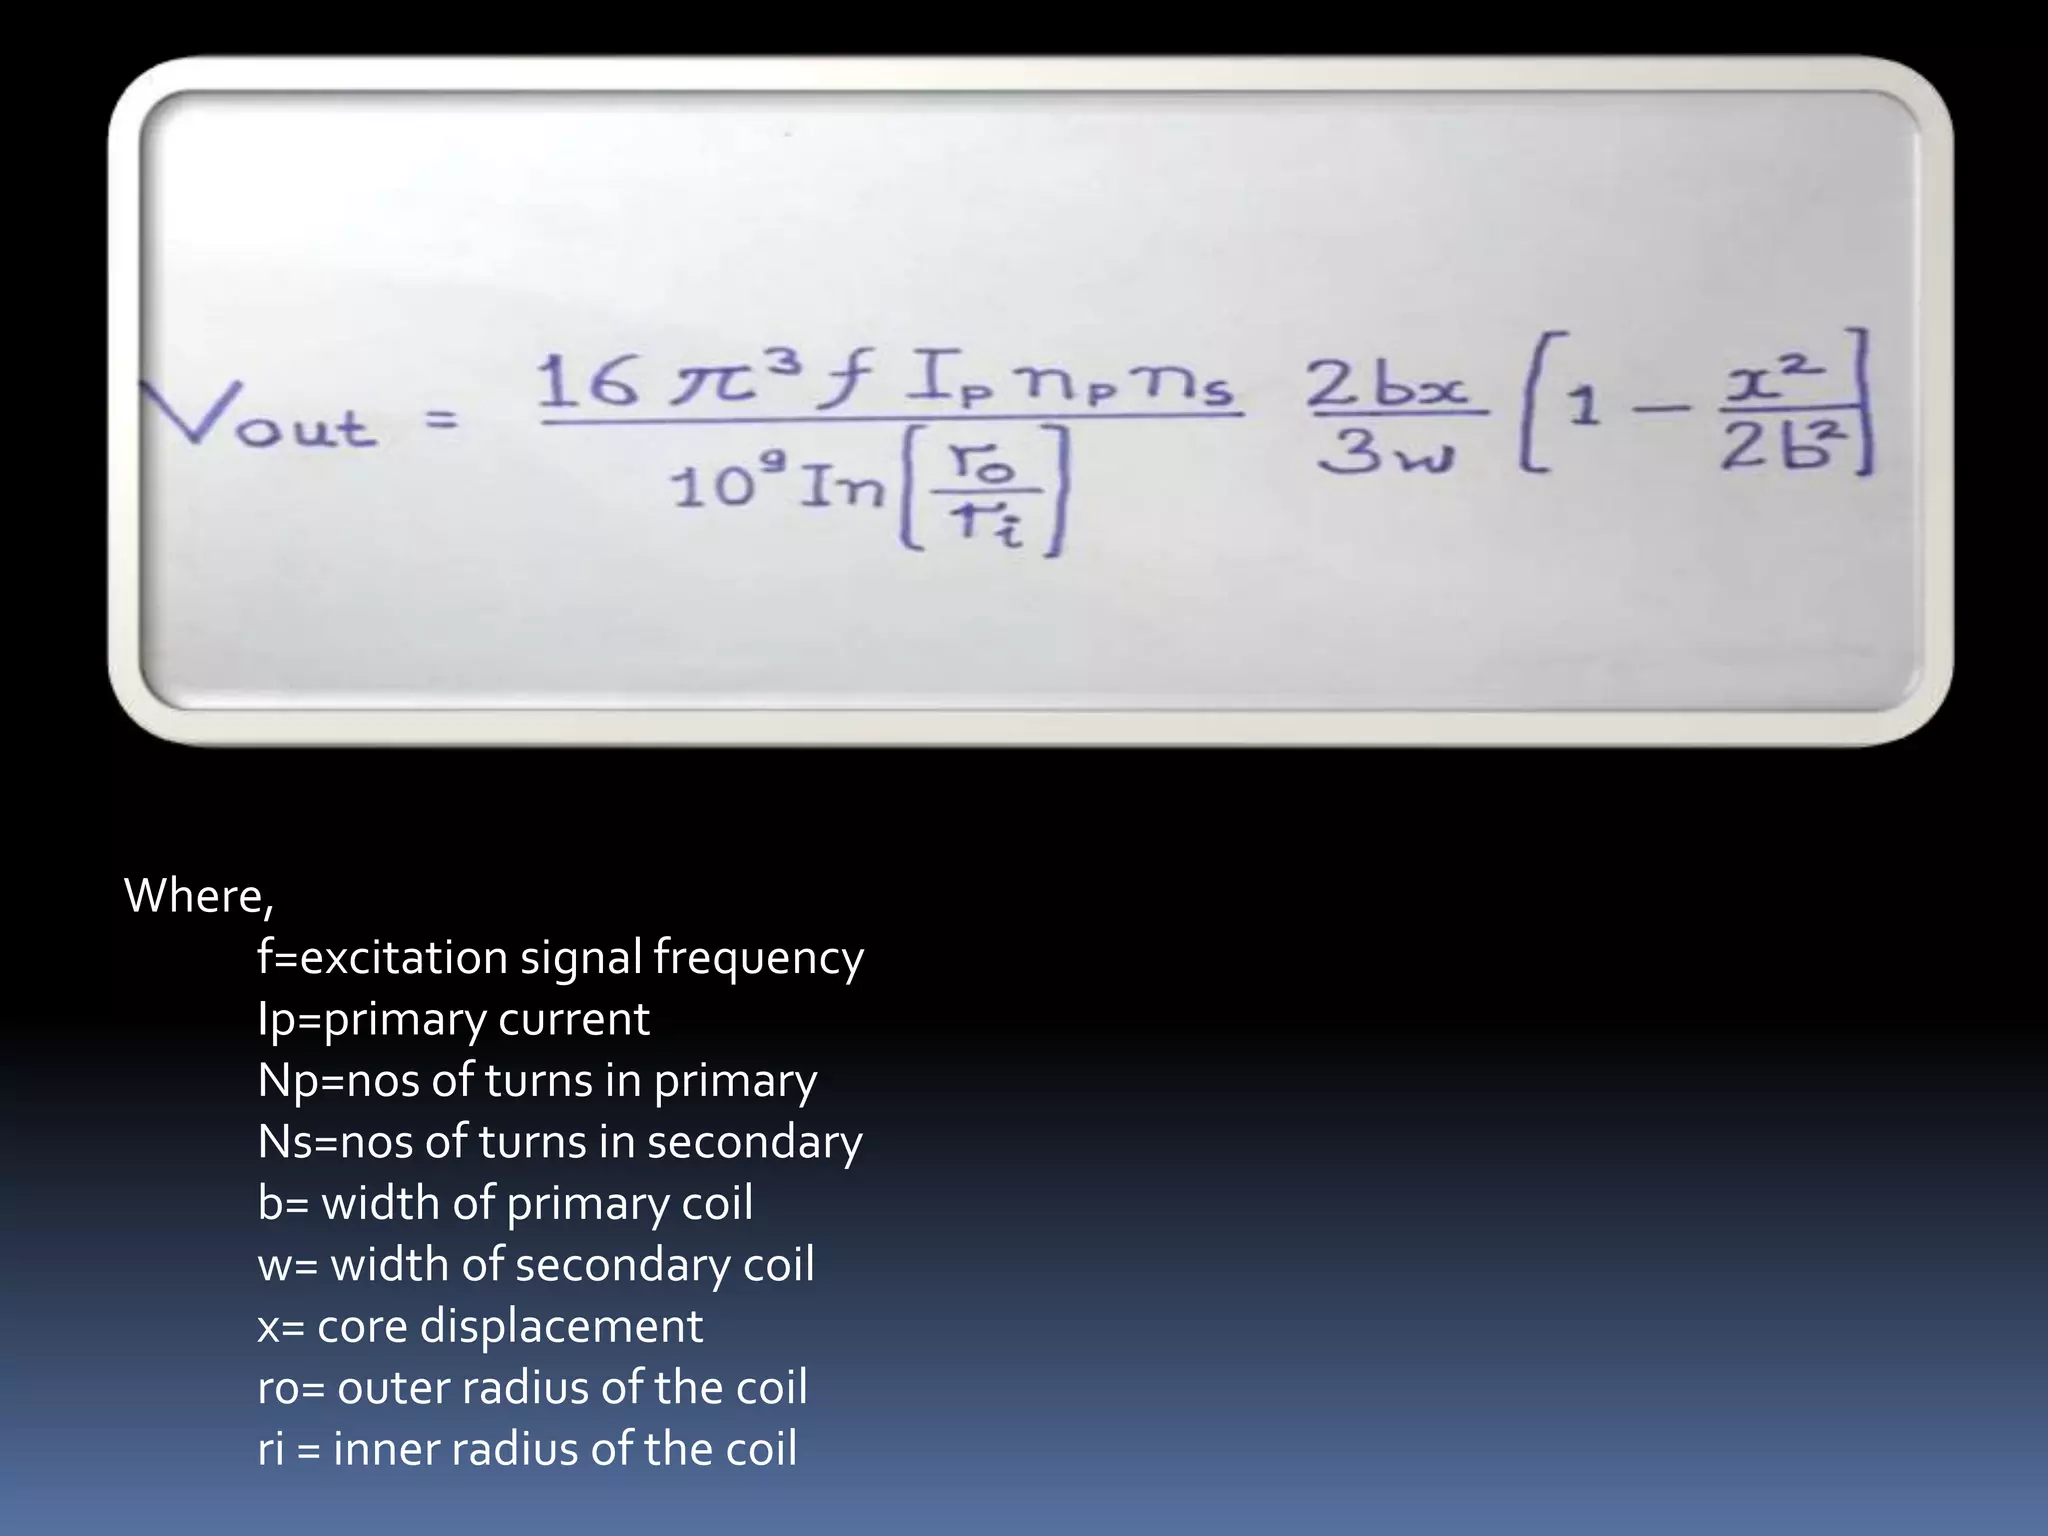 Vout = 16 π³ f Ip np ns / 10⁹ In [ro / ri] 2bx / 3w [1 - x² / 2b²]
Where,
f=excitation signal frequency
Ip=primary current
Np=nos of turns in primary
Ns=nos of turns in secondary
b= width of primary coil
w= width of secondary coil
x= core displacement
ro= outer radius of the coil
ri = inner radius of the coil